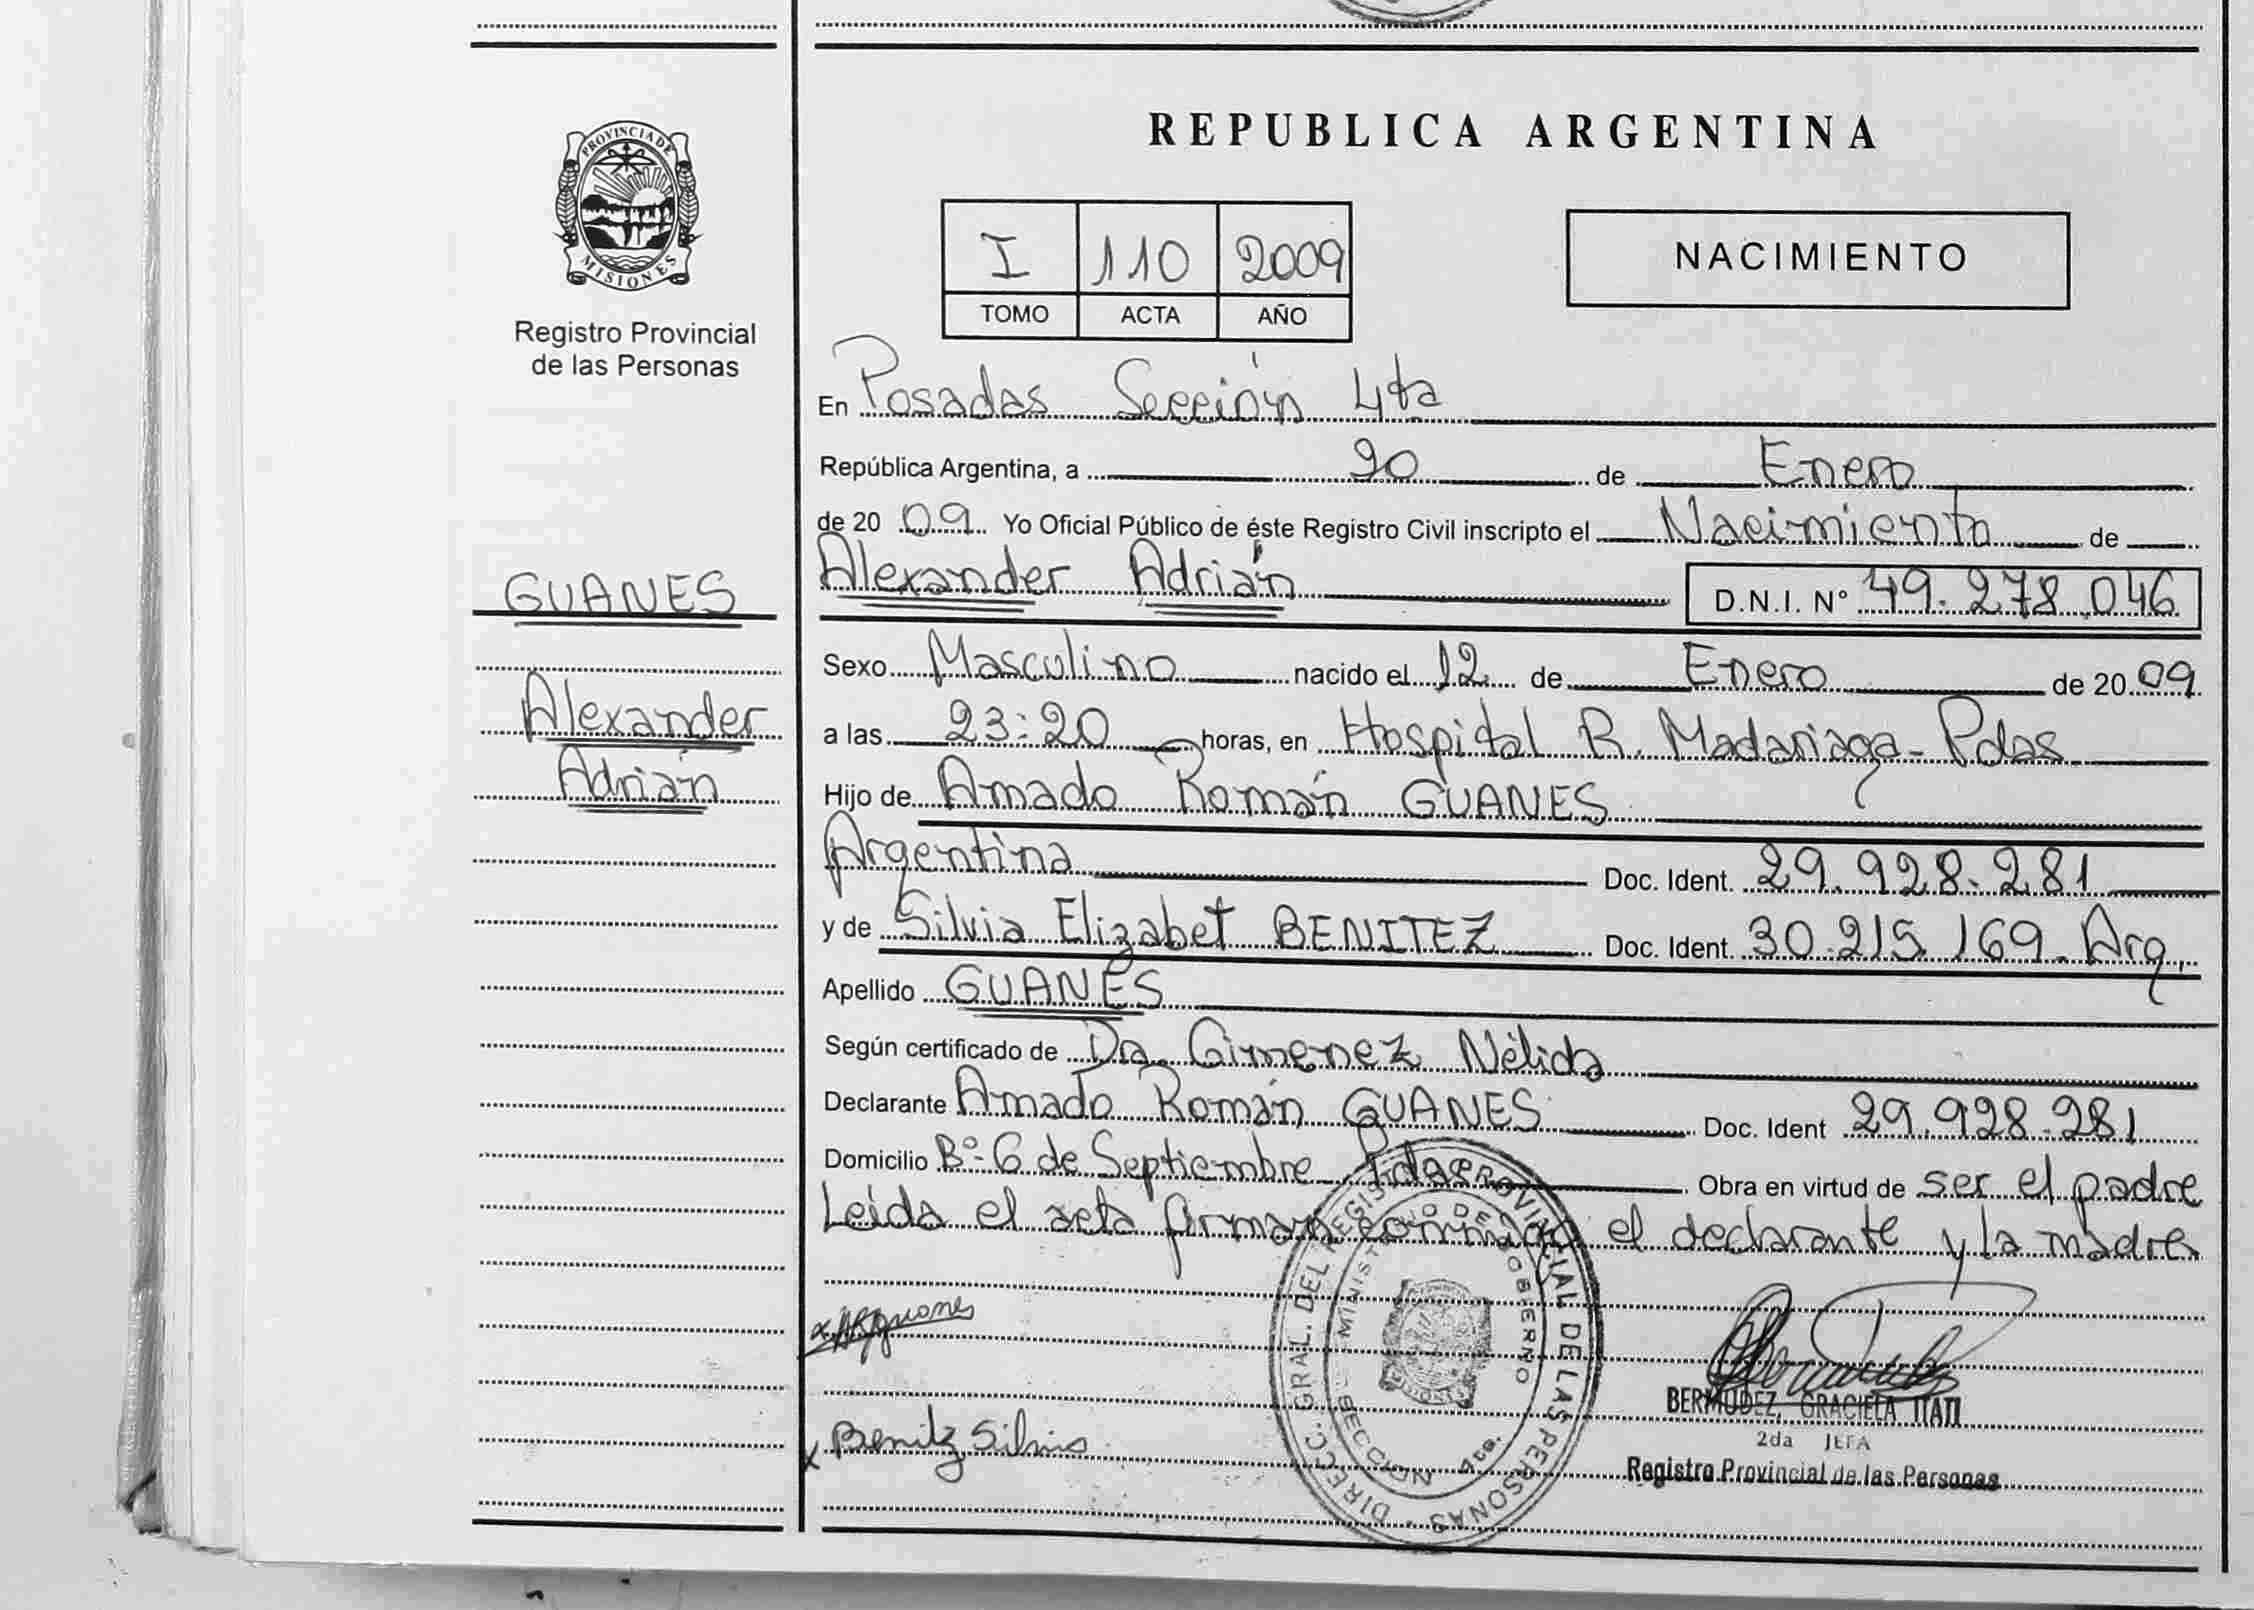 PROVINCIA DE
MISIONES
Registro Provincial
de las Personas
GUANES
Alexander
Adrián
REPUBLICA ARGENTINA
I 110 2009
TOMO ACTA AÑO
NACIMIENTO
En Posadas Sección 4ta
República Argentina, a 20 de Enero
de 20 09 Yo Oficial Público de éste Registro Civil inscripto el Nacimiento de
Alexander Adrián D.N.I. Nº 49.278.046
Sexo Masculino nacido el 12 de Enero de 20 09
a las 23:20 horas, en Hospital R. Madariaga - Pdas.
Hijo de Amado Román GUANES
Argentina Doc. Ident. 29.928.281
y de Silvia Elizabet BENITEZ Doc. Ident. 30.215.169. Arg.
Apellido GUANES
Según certificado de Dra. Gimenez Nélida
Declarante Amado Román GUANES Doc. Ident 29.928.281
Domicilio Bº 6 de Septiembre Pdas Obra en virtud de ser el padre
Leída el acta firman conmigo el declarante y la madre
x Benitez Silvia
DIRECC. GRAL. DEL REGIST. PROVINCIAL DE LAS PERSONAS
MINISTERIO DE GOBIERNO
SECCION 4ta.
MISIONES
BERMUDEZ, GRACIELA ITATI
2da JEFA
Registro Provincial de las Personas